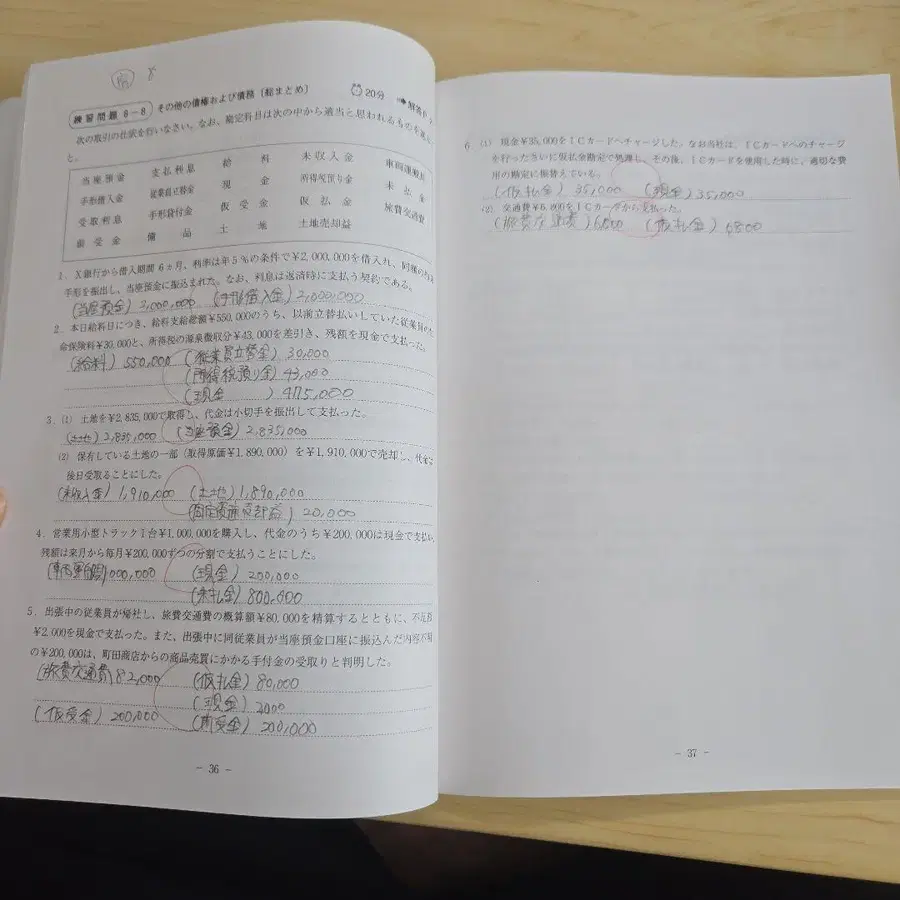 8
練習問題 6-8 その他の債権および債務〔総まとめ〕 20分 解答
次の取引の仕訳を行いなさい。なお、勘定科目は次の中から適当と思われるものを選
と。
当座預金 支払利息 給料 未収入金 車両運搬具
手形借入金 従業員立替金 現金 所得税預り金 未払金
受取利息 手形貸付金 仮受金 仮払金 旅費交通費
前受金 備品 土地 土地売却益
1. X銀行から借入期間6ヵ月、利率は年5%の条件で¥2,000,000を借入れ、同額の約束
手形を振出し、当座預金に振込まれた。なお、利息は返済時に支払う契約である。
(当座預金) 2,000,000 (手形借入金) 2,000,000
2. 本日給料日につき、給料支給総額¥550,000のうち、以前立替払いしていた従業員の
金保険料¥30,000と、所得税の源泉徴収分¥43,000を差引き、残額を現金で支払った。
(給料) 550,000 (従業員立替金) 30,000
(所得税預り金) 43,000
(現金) 475,000
3. (1) 土地を¥2,835,000で取得し、代金は小切手を振出して支払った。
(土地) 2,835,000 (当座預金) 2,835,000
(2) 保有している土地の一部(取得原価¥1,890,000)を¥1,910,000で売却し、代金は
後日受取ることにした。
(未収入金) 1,910,000 (土地) 1,890,000
(固定資産売却益) 20,000
4. 営業用小型トラック1台¥1,000,000を購入し、代金のうち¥200,000は現金で支払い、
残額は来月から毎月¥200,000ずつの分割で支払うことにした。
(車両運搬具) 1,000,000 (現金) 200,000
(未払金) 800,000
5. 出張中の従業員が帰社し、旅費交通費の概算額¥80,000を精算するとともに、不足額
¥2,000を現金で支払った。また、出張中に同従業員が当座預金口座に振込んだ内容不明
の¥200,000は、町田商店からの商品売買にかかる手付金の受取りと判明した。
(旅費交通費) 82,000 (仮払金) 80,000
(現金) 2000
(仮受金) 200,000 (前受金) 200,000
- 36 -
6. (1) 現金¥35,000をICカードへチャージした。なお当社は、ICカードへのチャージ
を行ったさいに仮払金勘定で処理し、その後、ICカードを使用した時に、適切な費
用の勘定に振替えている。
(仮払金) 35,000 (現金) 35,000
(2) 交通費¥6,800をICカードから支払った。
(旅費交通費) 6800 (仮払金) 6800
- 37 -